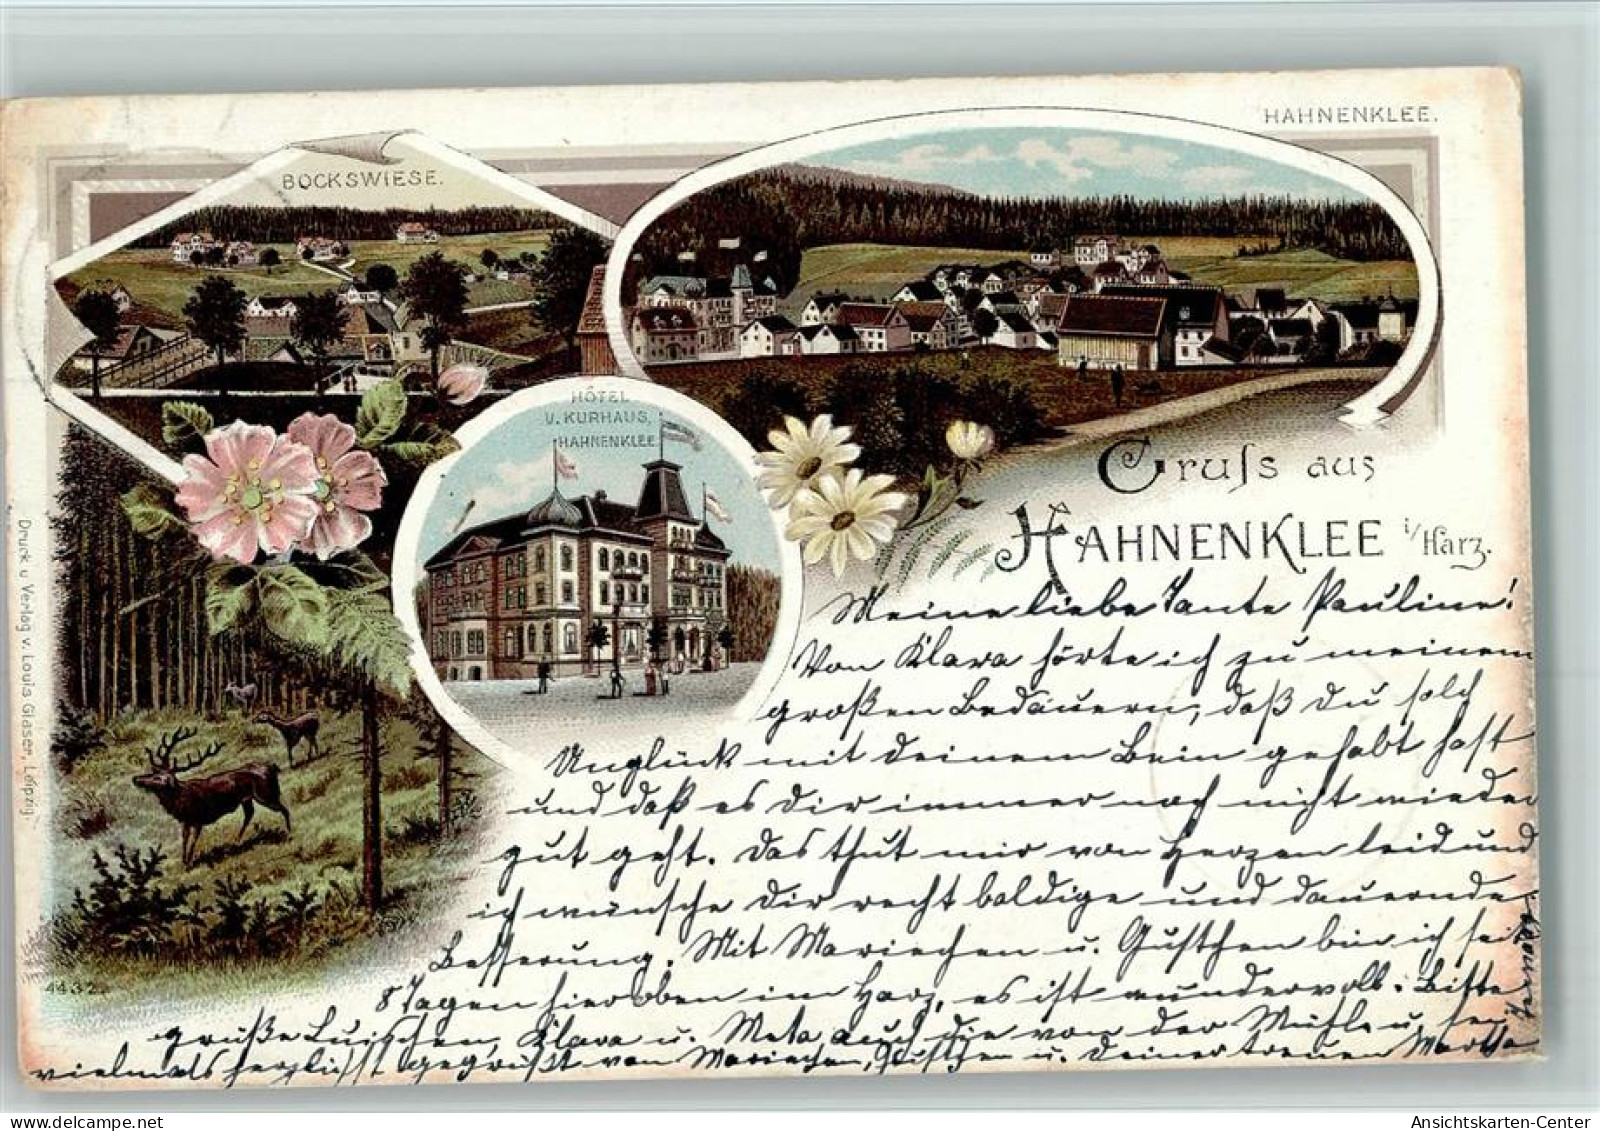 HAHNENKLEE.
BOCKSWIESE.
HÔTEL
U. KURHAUS,
HAHNENKLEE
Gruſs aus
HAHNENKLEE i/Harz.
Meine liebe Tante Pauline!
Von Klara hörte ich zu meinem
großen Bedauern, daß Du solch
Unglück mit deinem Bein gehabt hast
und daß es Dir immer noch nicht wieder
gut geht. Das thut mir von Herzen leid und
ich wünsche Dir recht baldige und dauernde
Besserung. Mit Mariechen u. Gusthen bin ich seit
8 Tagen hier oben im Harz, es ist wundervoll. Bitte
grüße Luischen, Klara u. Meta auch die von der Mühle u. sei
vielmals herzlichst gegrüßt von Mariechen, Gusthen u. Deiner treuen Martha
Druck u. Verlag v. Louis Glaser, Leipzig.
4432
Ansichtskarten-Center